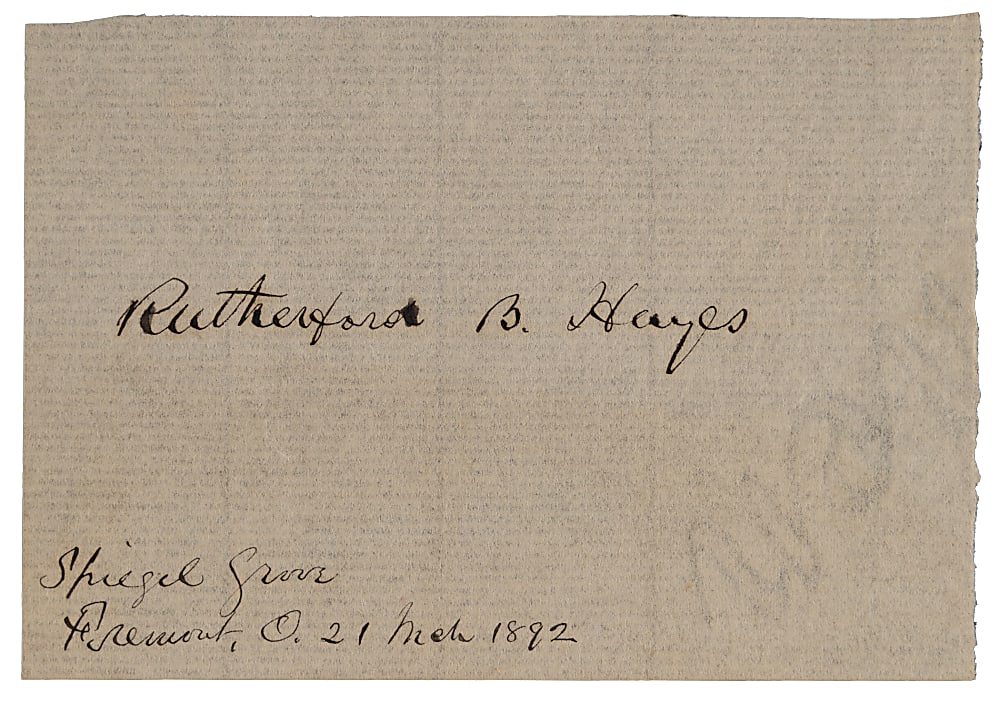 Rutherford B. Hayes
Spiegel Grove
Fremont, O. 21 Mch 1892